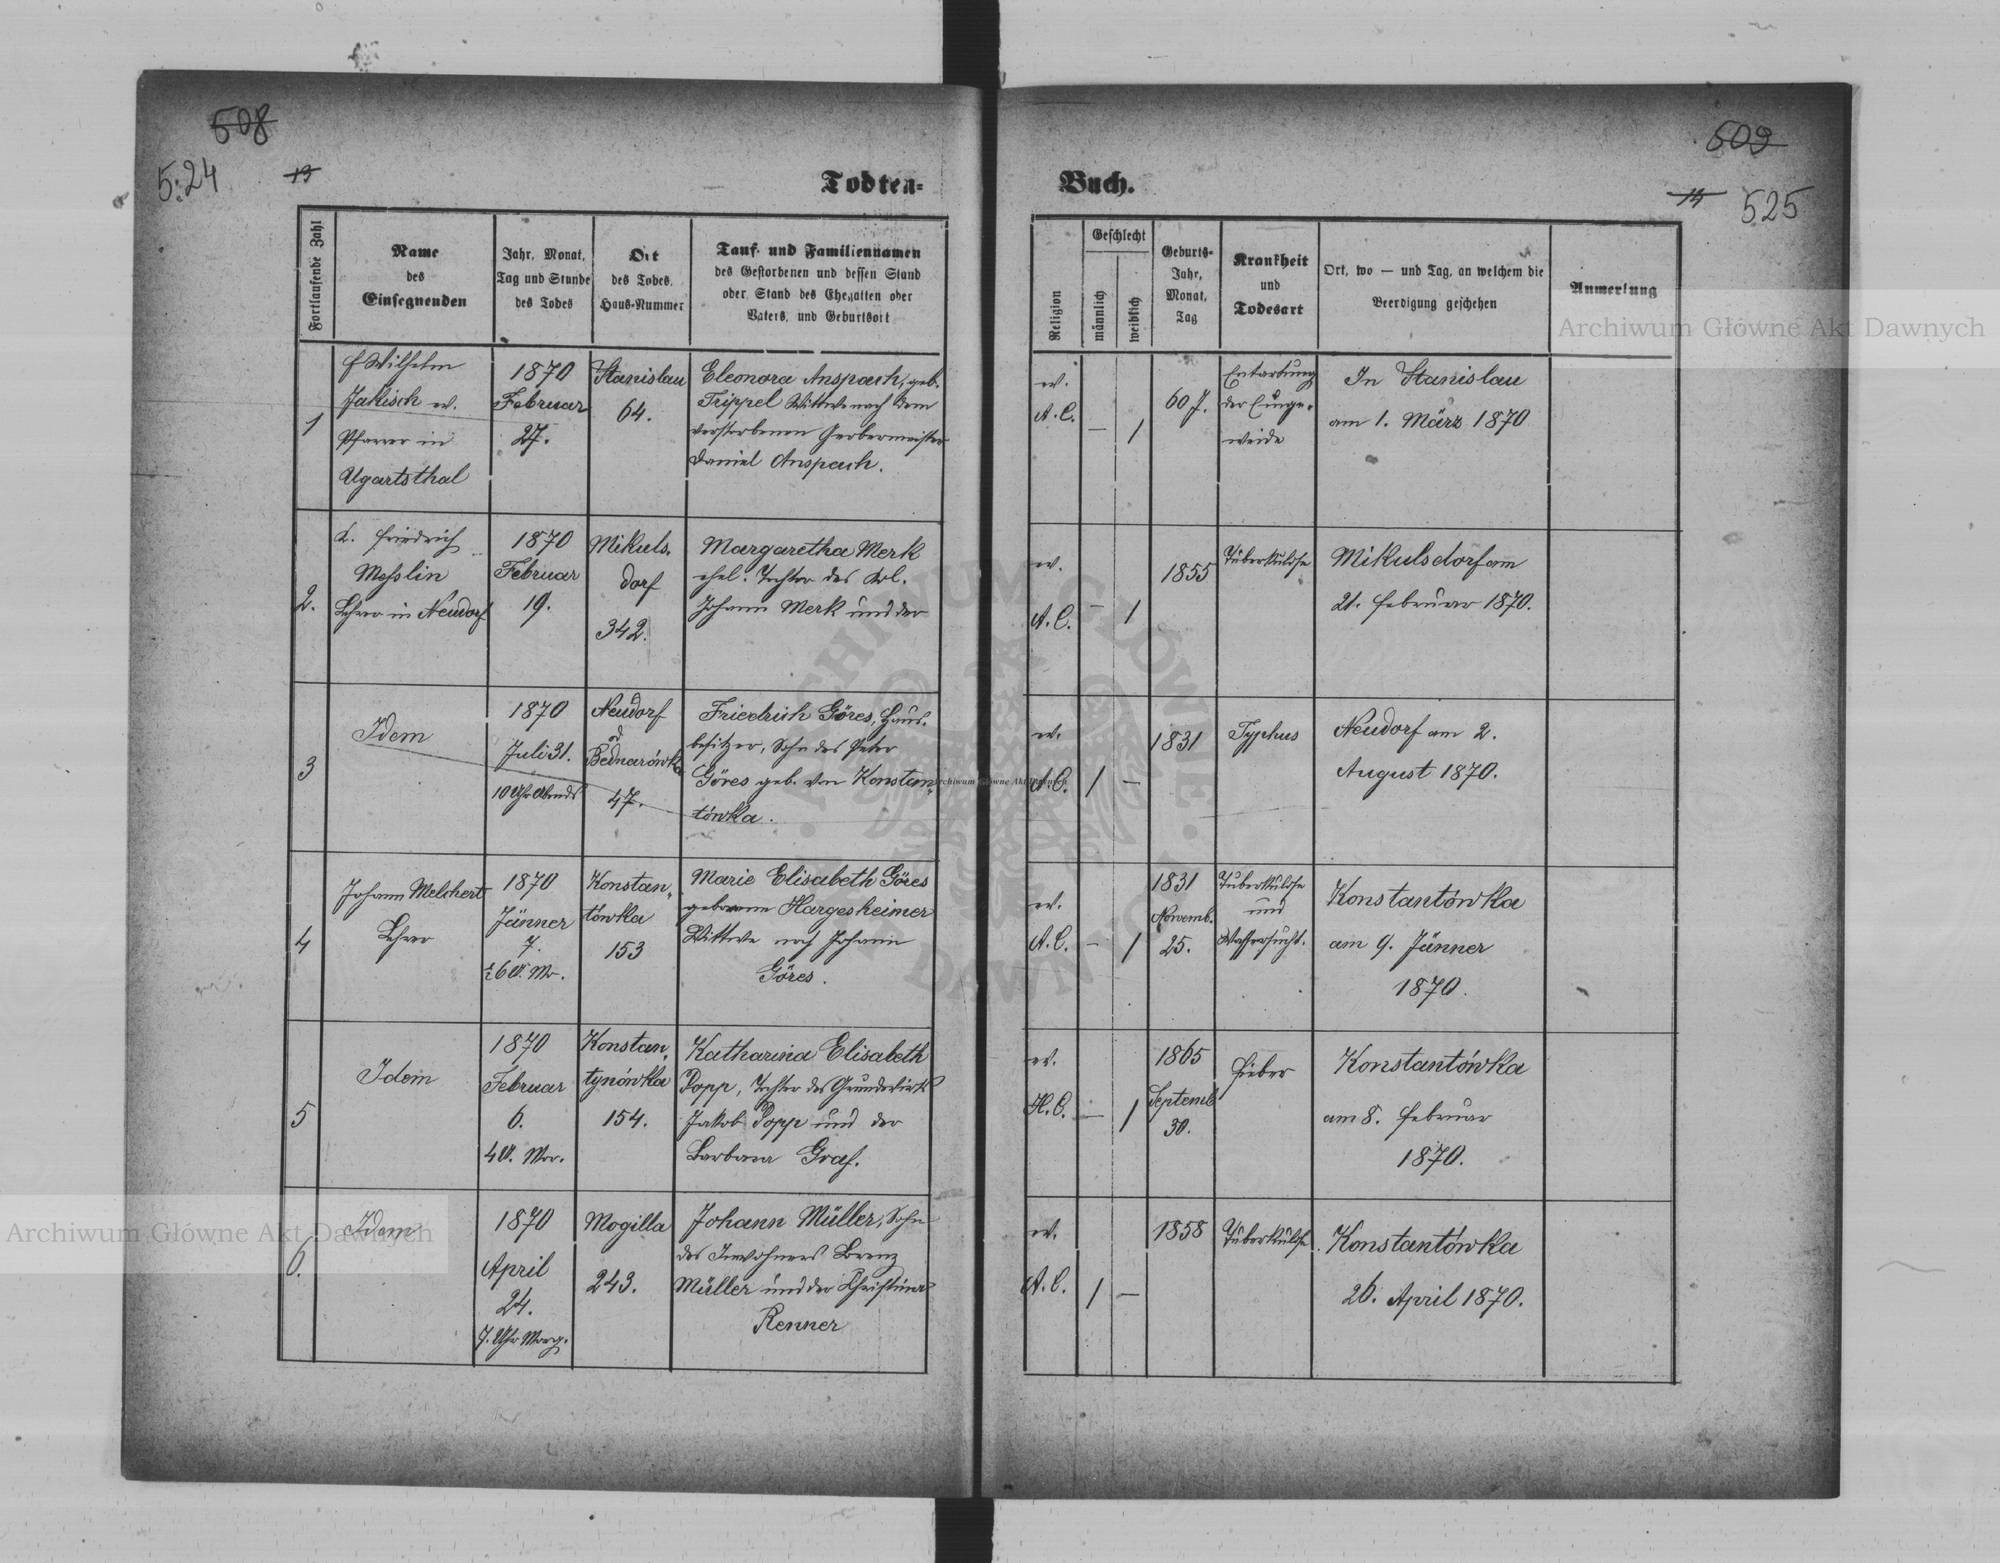 508
5.24
13
Todten=
Fortlaufende Zahl
Name
des
Einsegnenden
Jahr, Monat,
Tag und Stunde
des Todes
Ort
des Todes.
Haus-Nummer
Tauf- und Familiennamen
des Gestorbenen und dessen Stand
oder Stand des Ehegatten oder
Vaters, und Geburtsort
1
Wilhelm
Jakisch ev.
Pfarrer in
Ugartsthal
1870
Februar
27.
Stanislau
64.
Eleonora Anspach, geb.
Trippel Wittwe nach dem
verstorbenen Gerbermeister
Daniel Anspach.
2.
Friedrich
Messlin
Lehrer in Neudorf
1870
Februar
19.
Mikuls.
dorf
342.
Margaretha Merk
ehel. Tochter des
Johann Merk und der
3
Idem
1870
Juli 31.
10 Uhr Abends
Neudorf
Bednarówka
47.
Friedrich Göres, Haus-
besitzer, Sohn des Peter
Göres geb. von Konstan-
tówka.
4
Johann Melchert
Lehrer
1870
Jänner
7.
½6 U. Mr.
Konstan-
tówka
153
Marie Elisabeth Göres
geborene Hargesheimer
Wittwe nach Johann
Göres.
5
Idem
1870
Februar
6.
4 U. Mor.
Konstan-
tynówka
154.
Katharina Elisabeth
Popp, Tochter des Grundwirth
Jakob Popp und der
Barbara Graf.
6.
Idem
1870
April
24.
7. Uhr Morg.
Mogilla
243.
Johann Müller, Sohn
des Inwohners Lorenz
Müller und der Christina
Renner
509
14
525
Buch.
Religion
Geschlecht
männlich
weiblich
Geburts-
Jahr,
Monat,
Tag
Krankheit
und
Todesart
Ort, wo — und Tag, an welchem die
Beerdigung geschehen
Anmerkung
ev.
A. C.
—
1
60 J.
Entartung
der Einge-
weide
In Stanislau
am 1. März 1870
ev.
A. C.
—
1
1855
Tuberkulose
Mikulsdorf am
21. Februar 1870.
ev.
A. C.
1
—
1831
Typhus
Neudorf am 2.
August 1870.
ev.
A. C.
—
1
1831
Novemb.
25.
Tuberkulose
und
Wassersucht.
Konstantówka
am 9. Jänner
1870.
ev.
H. C.
—
1
1865
Septemb
30.
Fieber
Konstantówka
am 8. Februar
1870.
ev.
A. C.
1
—
1858
Tuberkulose
Konstantówka
26. April 1870.
Archiwum Główne Akt Dawnych
Archiwum Główne Akt Dawnych
Archiwum Główne Akt Dawnych
ARCHIWUM GŁÓWNE
AKT DAWNYCH